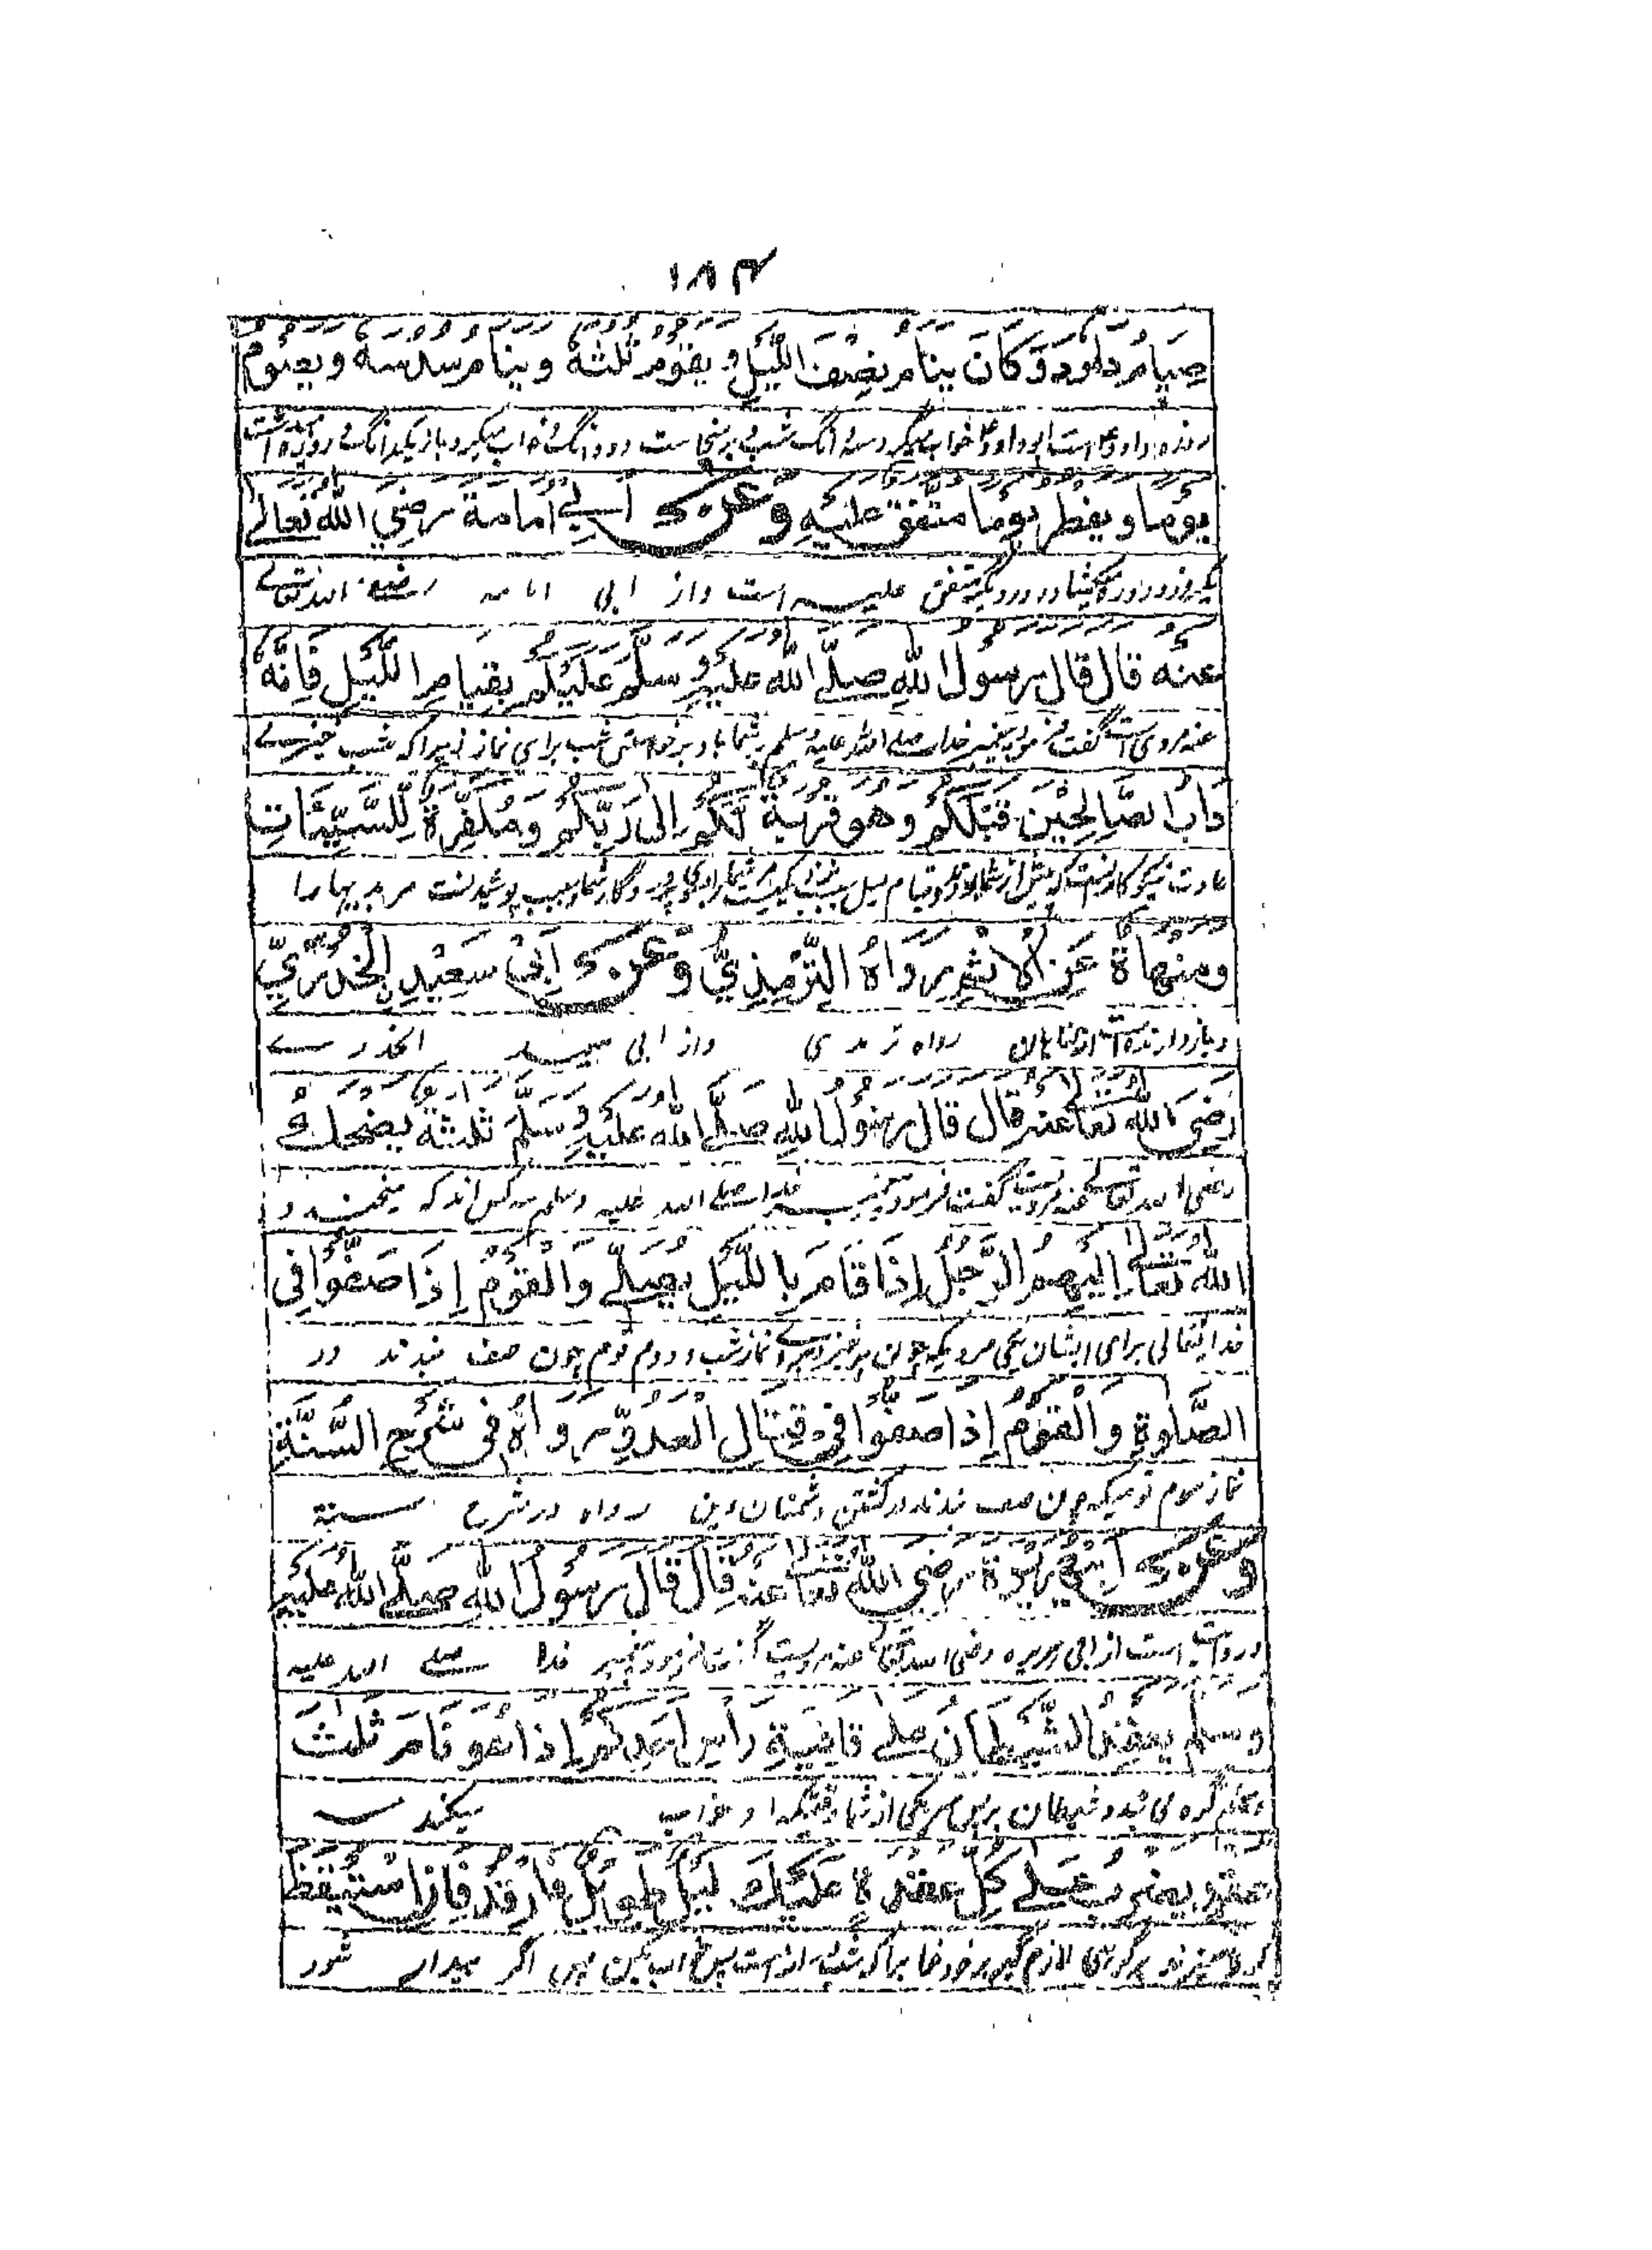 ١٨٣
صِيَامُ دَاوُدَ وَكَانَ يَنَامُ نِصْفَ اللَّيْلِ وَيَقُوْمُ ثُلُثَهُ وَيَنَامُ سُدُسَهُ وَيَصُوْمُ
روزه داود است
يَوْمًا وَيُفْطِرُ يَوْمًا مُتَّفَقٌ عَلَيْهِ وَعَنْ أَبِيْ أُمَامَةَ رَضِيَ اللهُ تَعَالٰى
متفق علیه است واز ابی امامه رضی الله تعالے
عَنْهُ قَالَ قَالَ رَسُوْلُ اللهِ صَلَّى اللهُ عَلَيْهِ وَسَلَّمَ عَلَيْكُمْ بِقِيَامِ اللَّيْلِ فَإِنَّهُ
عنه مروی است گفت فرمود پیغمبر خدا صلے الله علیه وسلم بر شما باد برخواستن شب برای نماز زیراکه شب خیزے
دَأْبُ الصَّالِحِيْنَ قَبْلَكُمْ وَهُوَ قُرْبَةٌ لَكُمْ إِلٰى رَبِّكُمْ وَمُكَفِّرَةٌ لِلسَّيِّئَاتِ
عادت نیکوکارانست که پیش از شما بودند و قیام لیل پوشیدنست مر بدیها را
وَمَنْهَاةٌ عَنِ الْإِثْمِ رَوَاهُ التِّرْمِذِيُّ وَعَنْ أَبِيْ سَعِيْدٍ الْخُدْرِيِّ
وبازدارنده است از گناهان رواه ترمذی واز ابی سعید الخدرے
رَضِيَ اللهُ تَعَالٰى عَنْهُ قَالَ قَالَ رَسُوْلُ اللهِ صَلَّى اللهُ عَلَيْهِ وَسَلَّمَ ثَلٰثَةٌ يَضْحَكُ
رضی الله تعالے عنه مرویست گفت فرمود پیغمبر خدا صلے الله علیه وسلم سه کس اند که میخندد
اللهُ تَعَالٰى إِلَيْهِمُ الرَّجُلُ إِذَا قَامَ بِاللَّيْلِ يُصَلِّيْ وَالْقَوْمُ إِذَا صَفُّوْا فِي
خدایتعالی برای ایشان یکی مردیکه چون برخیزد براے نماز شب و دوم قوم چون صف بندند در
الصَّلٰوةِ وَالْقَوْمُ إِذَا صَفُّوْا فِيْ قِتَالِ الْعَدُوِّ رَوَاهُ فِيْ شَرْحِ السُّنَّةِ
نماز سوم قومیکه چون صف بندند در کشتن دشمنان دین رواه در شرح سنة
وَعَنْ أَبِيْ هُرَيْرَةَ رَضِيَ اللهُ تَعَالٰى عَنْهُ قَالَ قَالَ رَسُوْلُ اللهِ صَلَّى اللهُ عَلَيْهِ
و روایت است از ابی هریره رضی الله تعالے عنه مرویست گفت فرمود پیغمبر خدا صلے الله علیه
وَسَلَّمَ يَعْقِدُ الشَّيْطَانُ عَلٰى قَافِيَةِ رَأْسِ أَحَدِكُمْ إِذَا هُوَ نَامَ ثَلٰثَ
وسلم گره می بندد شیطان بر پس سر یکی از شما وقتیکه او خواب میکند سه
عُقَدٍ يَضْرِبُ عَلٰى كُلِّ عُقْدَةٍ عَلَيْكَ لَيْلٌ طَوِيْلٌ فَارْقُدْ فَإِنِ اسْتَيْقَظَ
گره هر گرهی لازم اگر بیدار شود